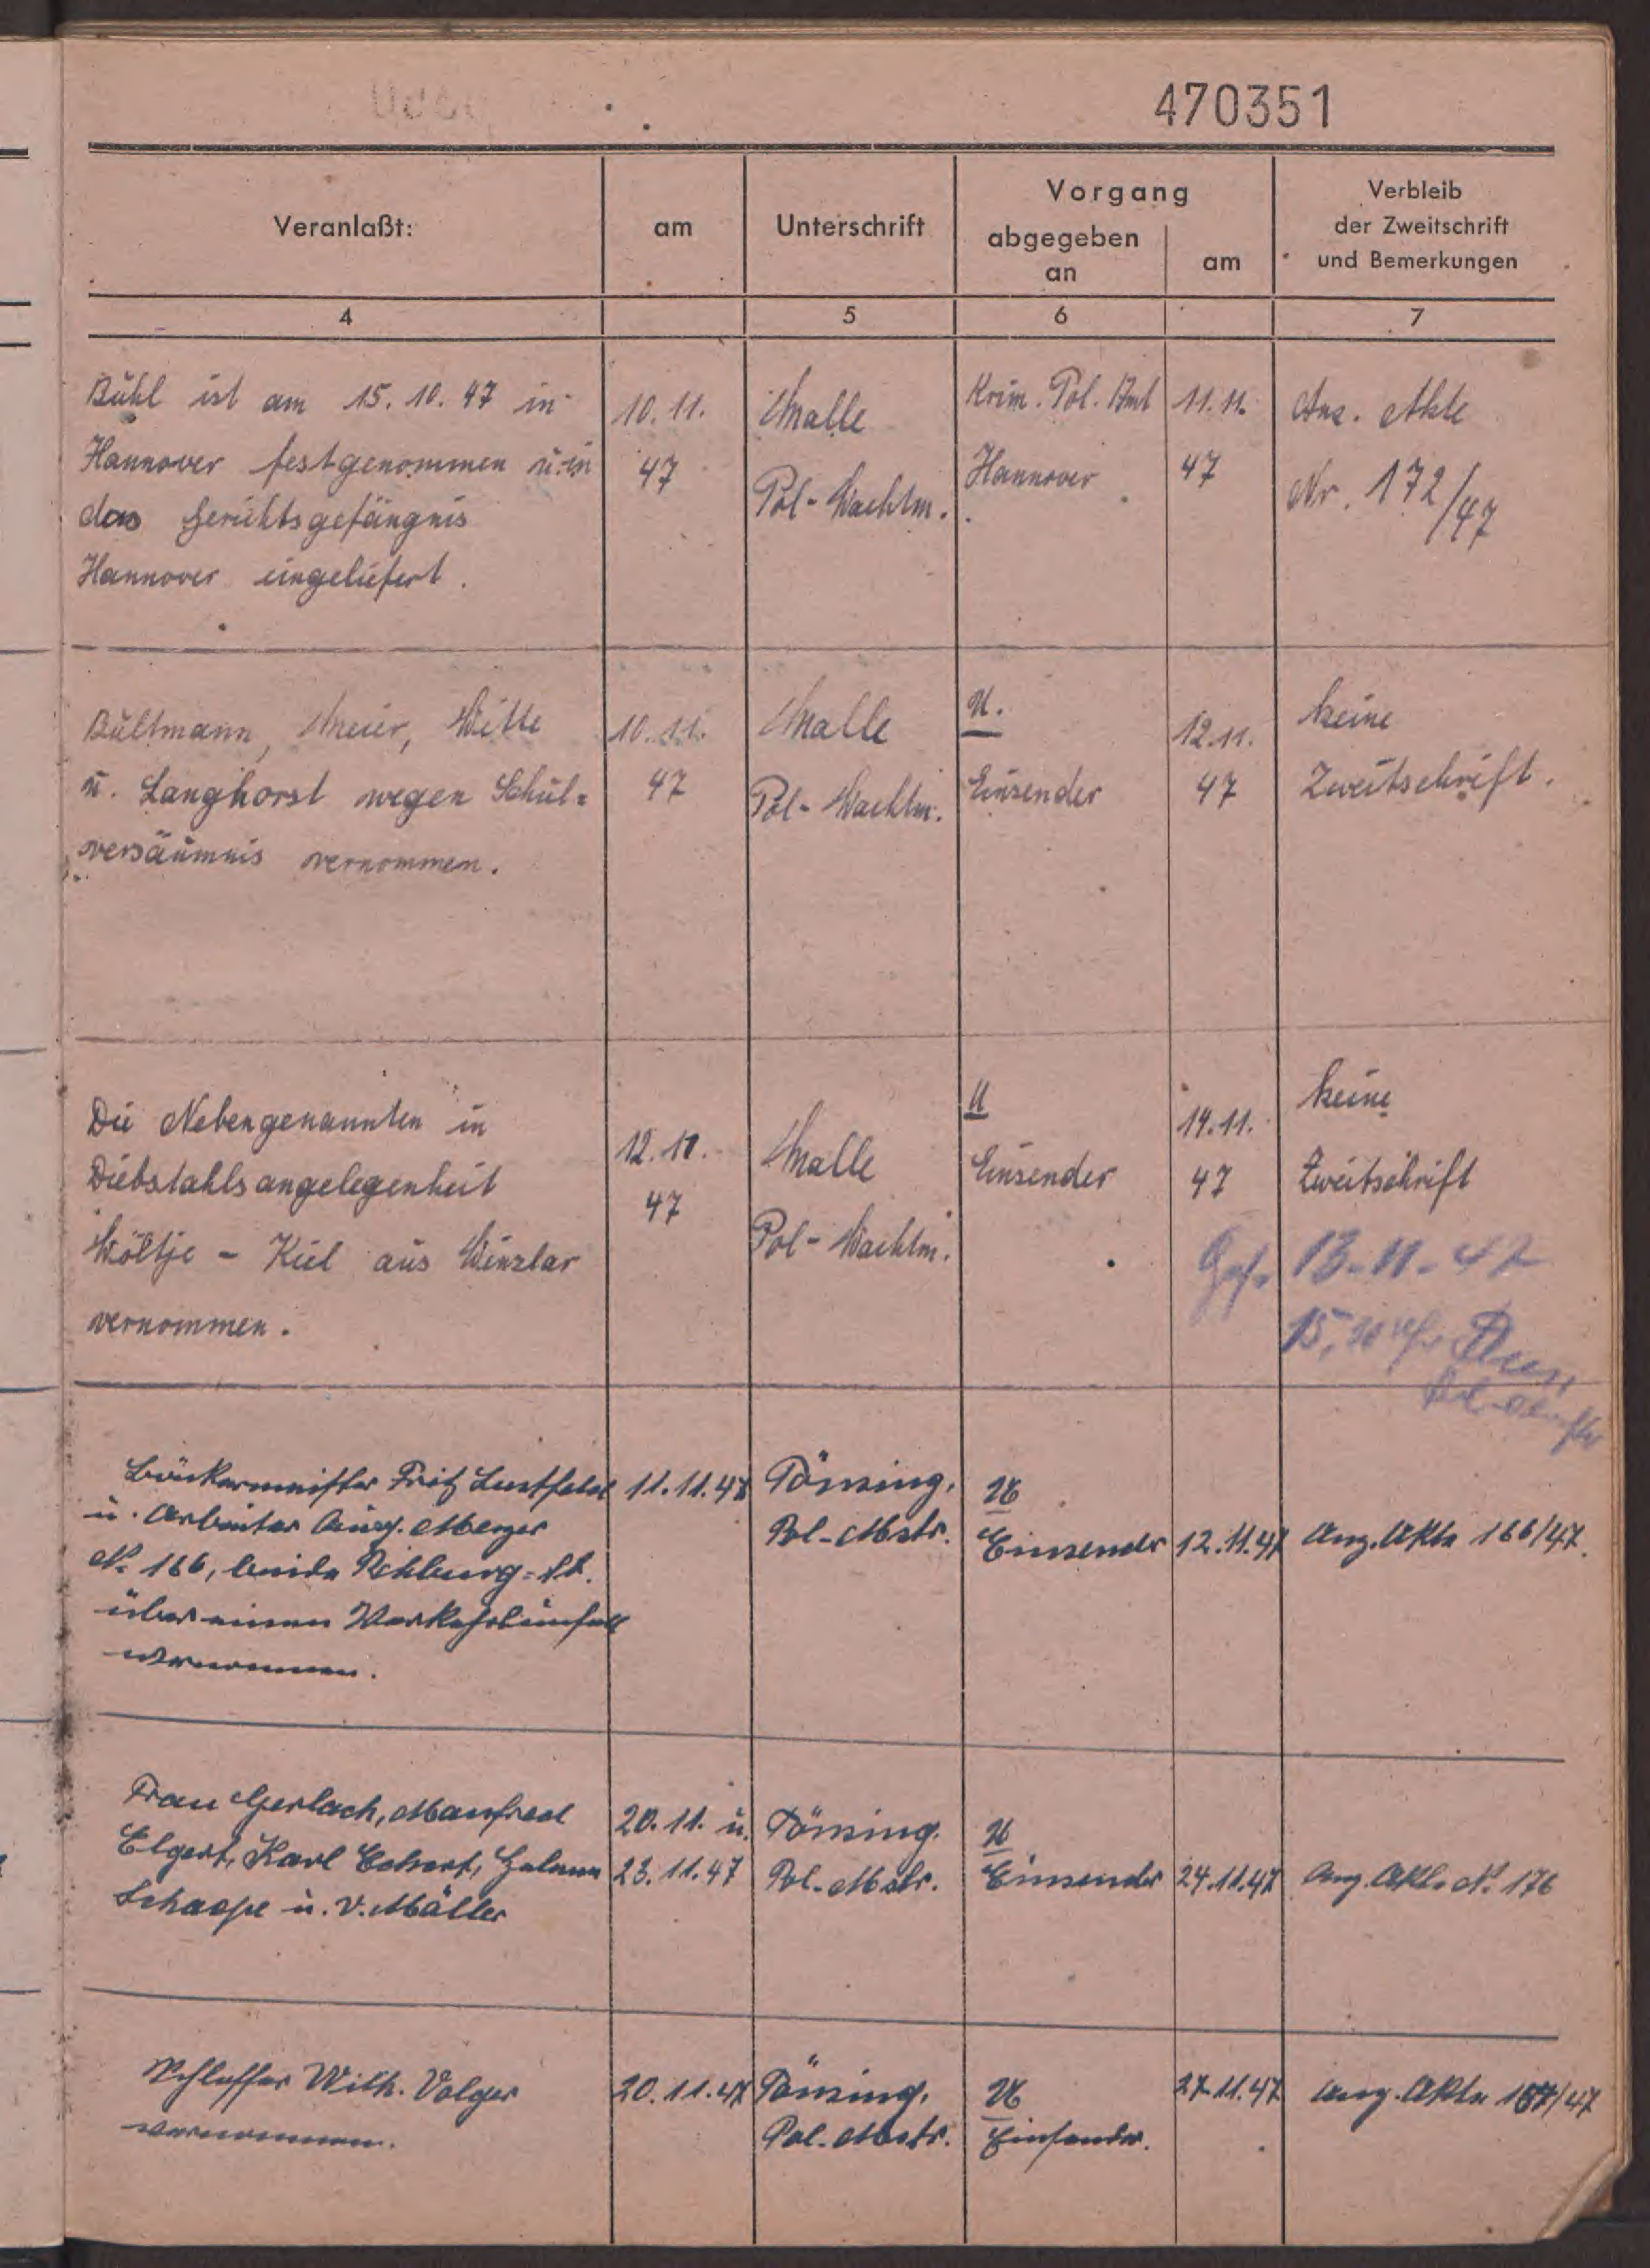 470351
Veranlaßt:
am
Unterschrift
Vorgang
abgegeben
an
am
Verbleib
der Zweitschrift
und Bemerkungen
4
5
6
7
Bühl ist am 15. 10. 47 in
Hannover festgenommen u. in
das Gerichtsgefängnis
Hannover eingeliefert.
10. 11.
47
Malle
Pol-Wachtm.
Krim. Pol. Amt
Hannover
11. 11.
47
Anz. Akte
Nr. 172/47
Bültmann, Meier, Witte
u. Langhorst wegen Schul=
versäumnis vernommen.
10. 11.
47
Malle
Pol-Wachtm.
U.
Einsender
12. 11.
47
keine
Zweitschrift.
Die Nebengenannten in
Diebstahlsangelegenheit
Wöltje - Kiel aus Winzlar
vernommen.
12. 11.
47
Malle
Pol-Wachtm.
U
Einsender
14. 11.
47
keine
Zweitschrift
Ges. 13-11-47
15,
Bäckermeister Fritz Lustfeld
u. Arbeiter Aug. Meyer
Nr. 166, beide Rehburg-St.
über einen Verkehrsunfall
vernommen.
11.11.47
Tönsing,
Pol-Mstr.
U
Einsender
12.11.47
Anz. Akte 166/47.
Frau Gerlach, Manfred
Elgert, Karl Eckert,
Schaope u. V. Müller
20.11. u.
23.11.47
Tönsing.
Pol-Mstr.
U
Einsender
24.11.47
Anz. Akte Nr. 176
Schlosser Wilh. Volger
vernommen.
20.11.47
Tönsing.
Pol-Mstr.
U
Einsender.
27.11.47
Anz. Akte 167/47